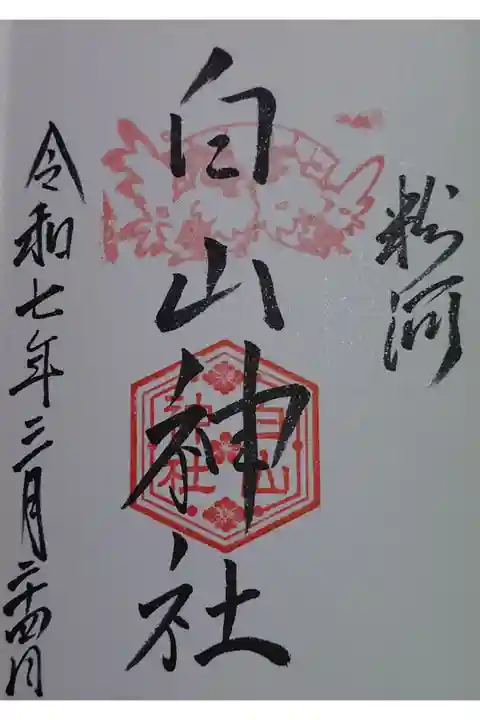 粉河
白山神社
白山
神社
令和七年三月二十四日